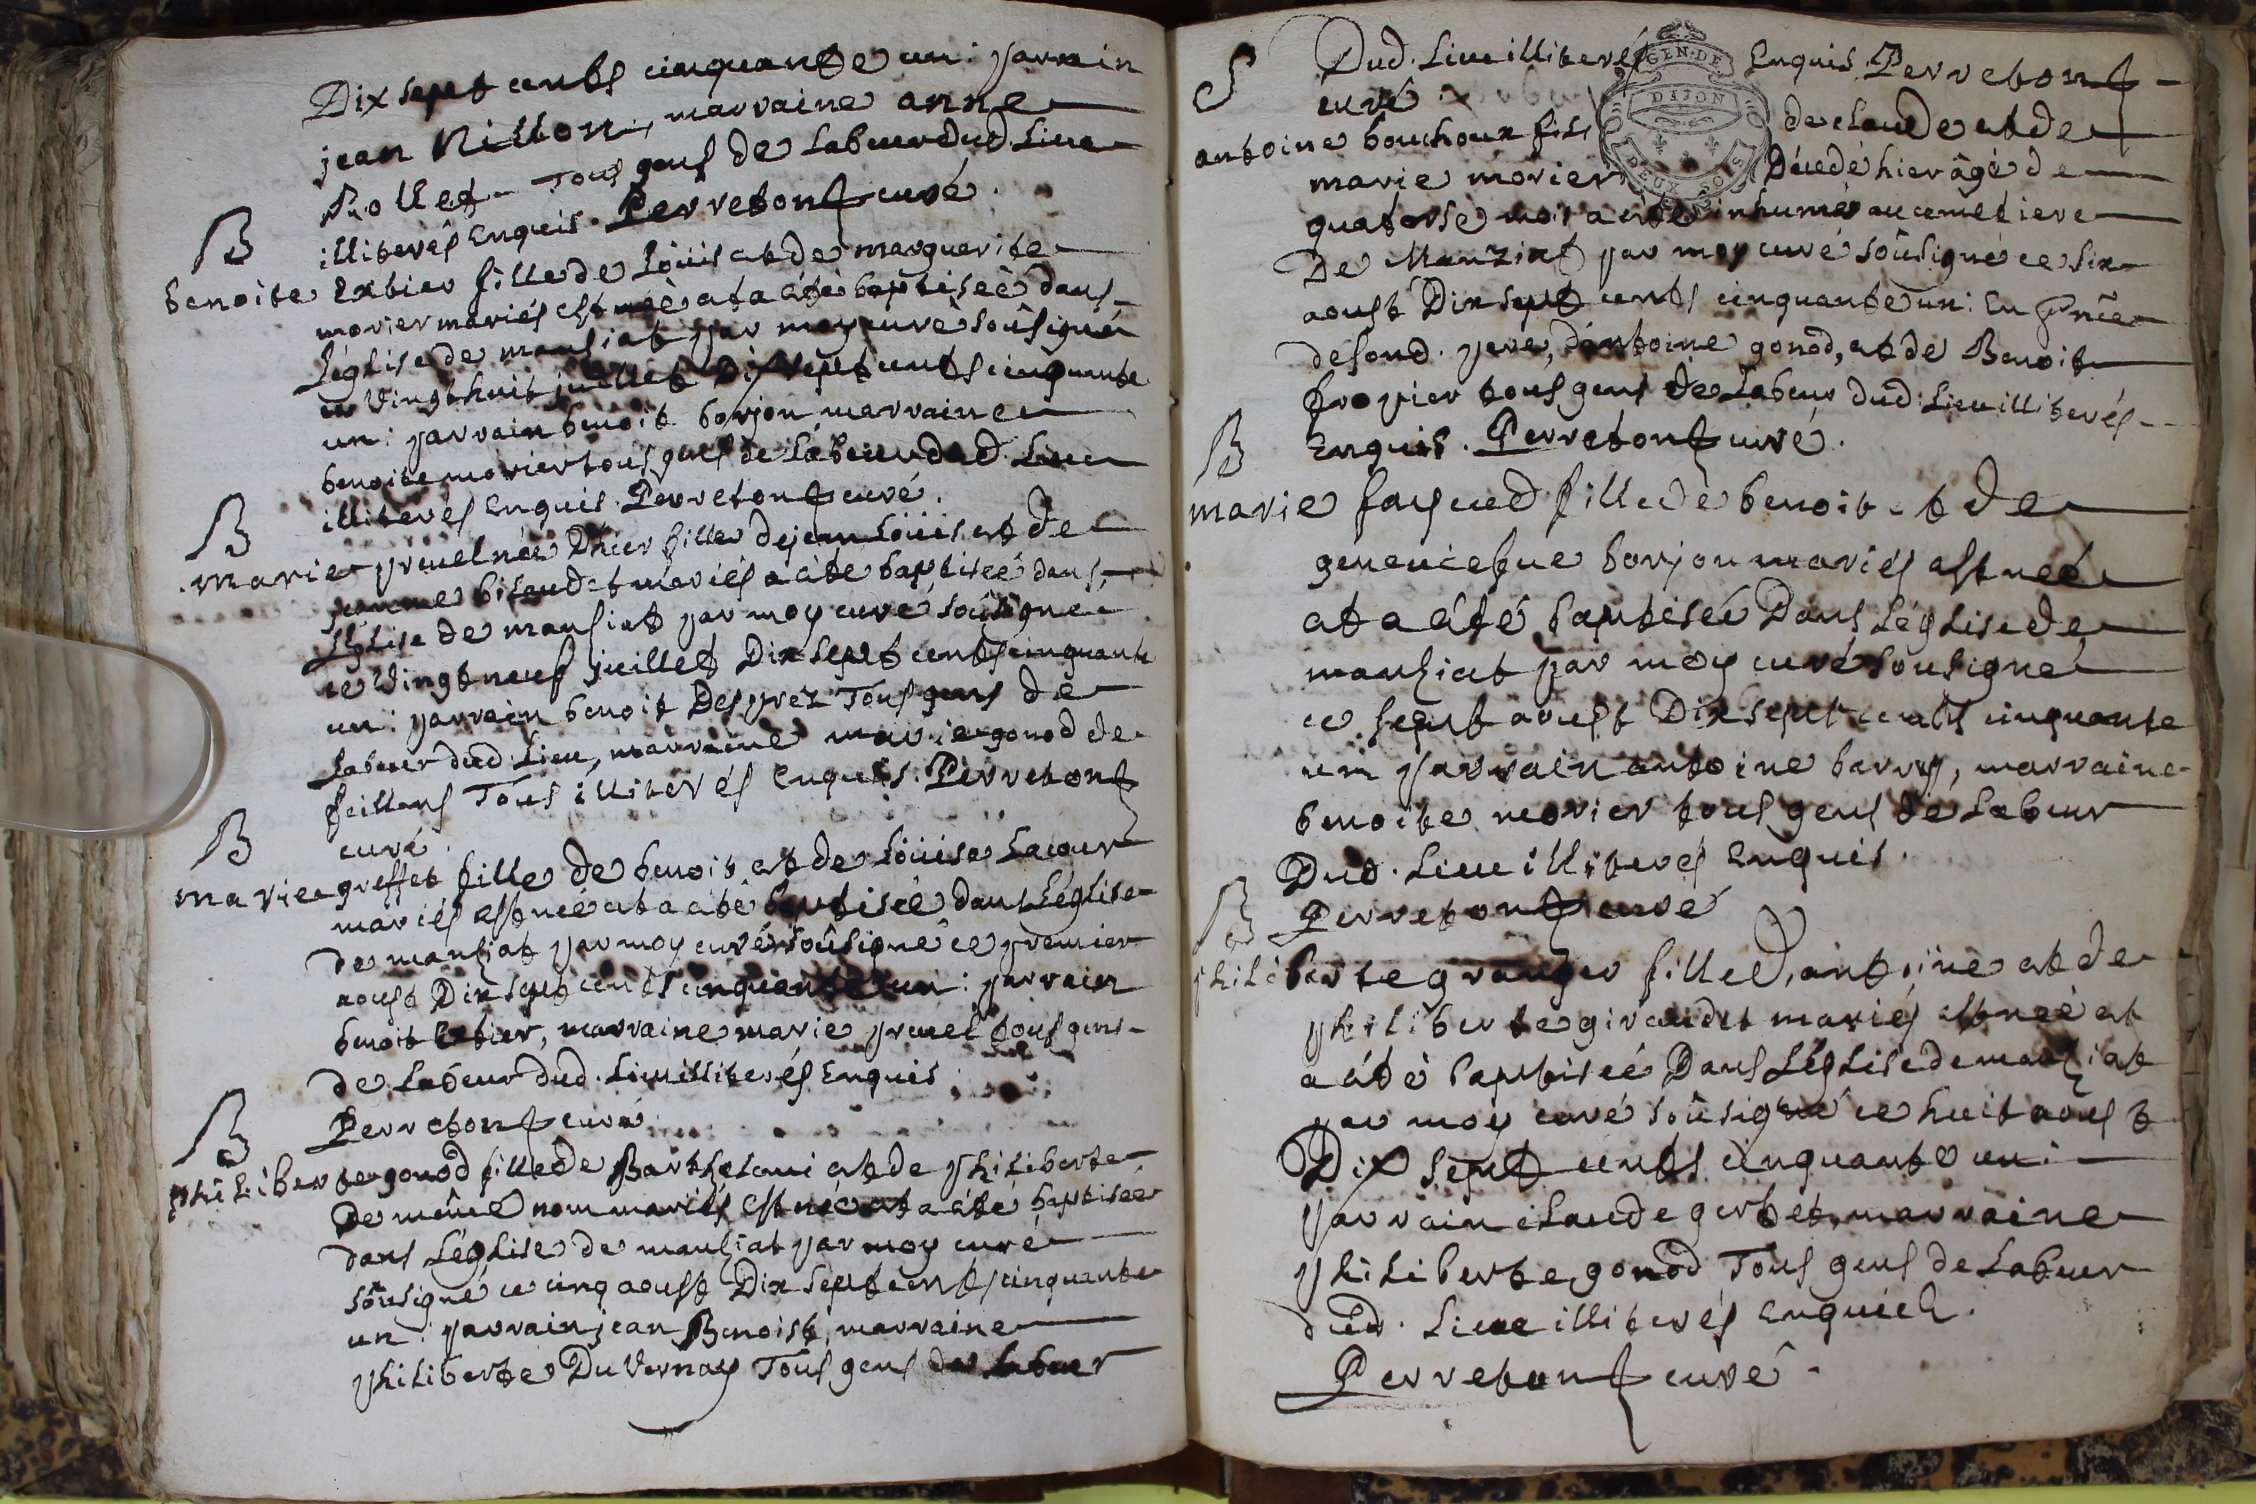 Dix sept cents cinquante un : parrain
jean Nillon, marraine anne
Rollet Tous gens de Labeur dud. Lieu
illiterés Enquis. Perreton curé.
B
benoite Extier fille de Loüis et de marguerite
morier mariés est née et a été baptiseé dans
Léglise de mansiat par moy curé soûsigné
ce vingt huit juillet Dix sept cents cinquante
un : parrain benoit borjon marraine
benoite morier tous gens de Labeur dud. Lieu
illiterés Enquis. Perreton curé.
B
marie pruel née D'hier fille de jean Loüis et de
jeanne bisaudet mariés a été baptiseé dans
Léglise de mansiat par moy curé soûsigné
ce vingt neuf juillet Dix sept cents cinquante
un : parrain benoit Desprez Tous gens de
Labeur dud. Lieu, marraine marie gonod de
feillens Tous illiterés Enquis. Perreton
curé.
B
marie greffet fille de benoit et de Loüise Lacour
mariés est neé et a été baptiseé dans Léglise
de mansiat par moy curé soûsigné ce premier
aoust Dix sept cents cinquante un : parrain
benoit Extier, marraine marie pruel tous gens
de Labeur dud. Lieu illiterés Enquis
Perreton curé
B
philiberte gonod fille de Barthelemi et de philiberte
De même nom mariés est née et a été baptiseé
dans Léglise de manziat par moy curé
soûsigné ce cinq aoust Dix sept cents cinquante
un : parrain jean Benoist, marraine
philiberte Duvernay Tous gens de Labeur
S
Dud. Lieu illiterés Enquis. Perreton
curé
GEN. DE
DIJON
DEUX SOLS
antoine bouchoux fils de claude et de
marie morier Décédé hier âgé de
quatorse mois a été inhumé au cemetiere
De Manziat par moy curé soûsigné ce six
aoust Dix sept cents cinquante un : En pnce
de sond. pere, d'antoine gonod, et de Benoit
frovier tous gens de Labeur dud. Lieu illiterés
Enquis. Perreton curé.
B
marie fayeud fille de benoit et de
geneviefve borjon mariés est neé
et a été baptiseé Dans Léglise de
manziat par moy curé sousigné
ce sept aoust Dix sept cents cinquante
un parrain antoine barry, marraine
benoite morier tous gens de Labeur
Dud. Lieu illiterés Enquis.
Perreton curé
B
philiberte granger fille d'antoine et de
philiberte giraudet mariés est neé et
a été baptiseé Dans Léglise de manziat
par moy curé soûsigné ce huit aoust
Dix sept cents cinquante un :
parrain claude gerbet, marraine
philiberte gonod Tous gens de Labeur
dud. Lieu illiterés Enquis.
Perreton curé